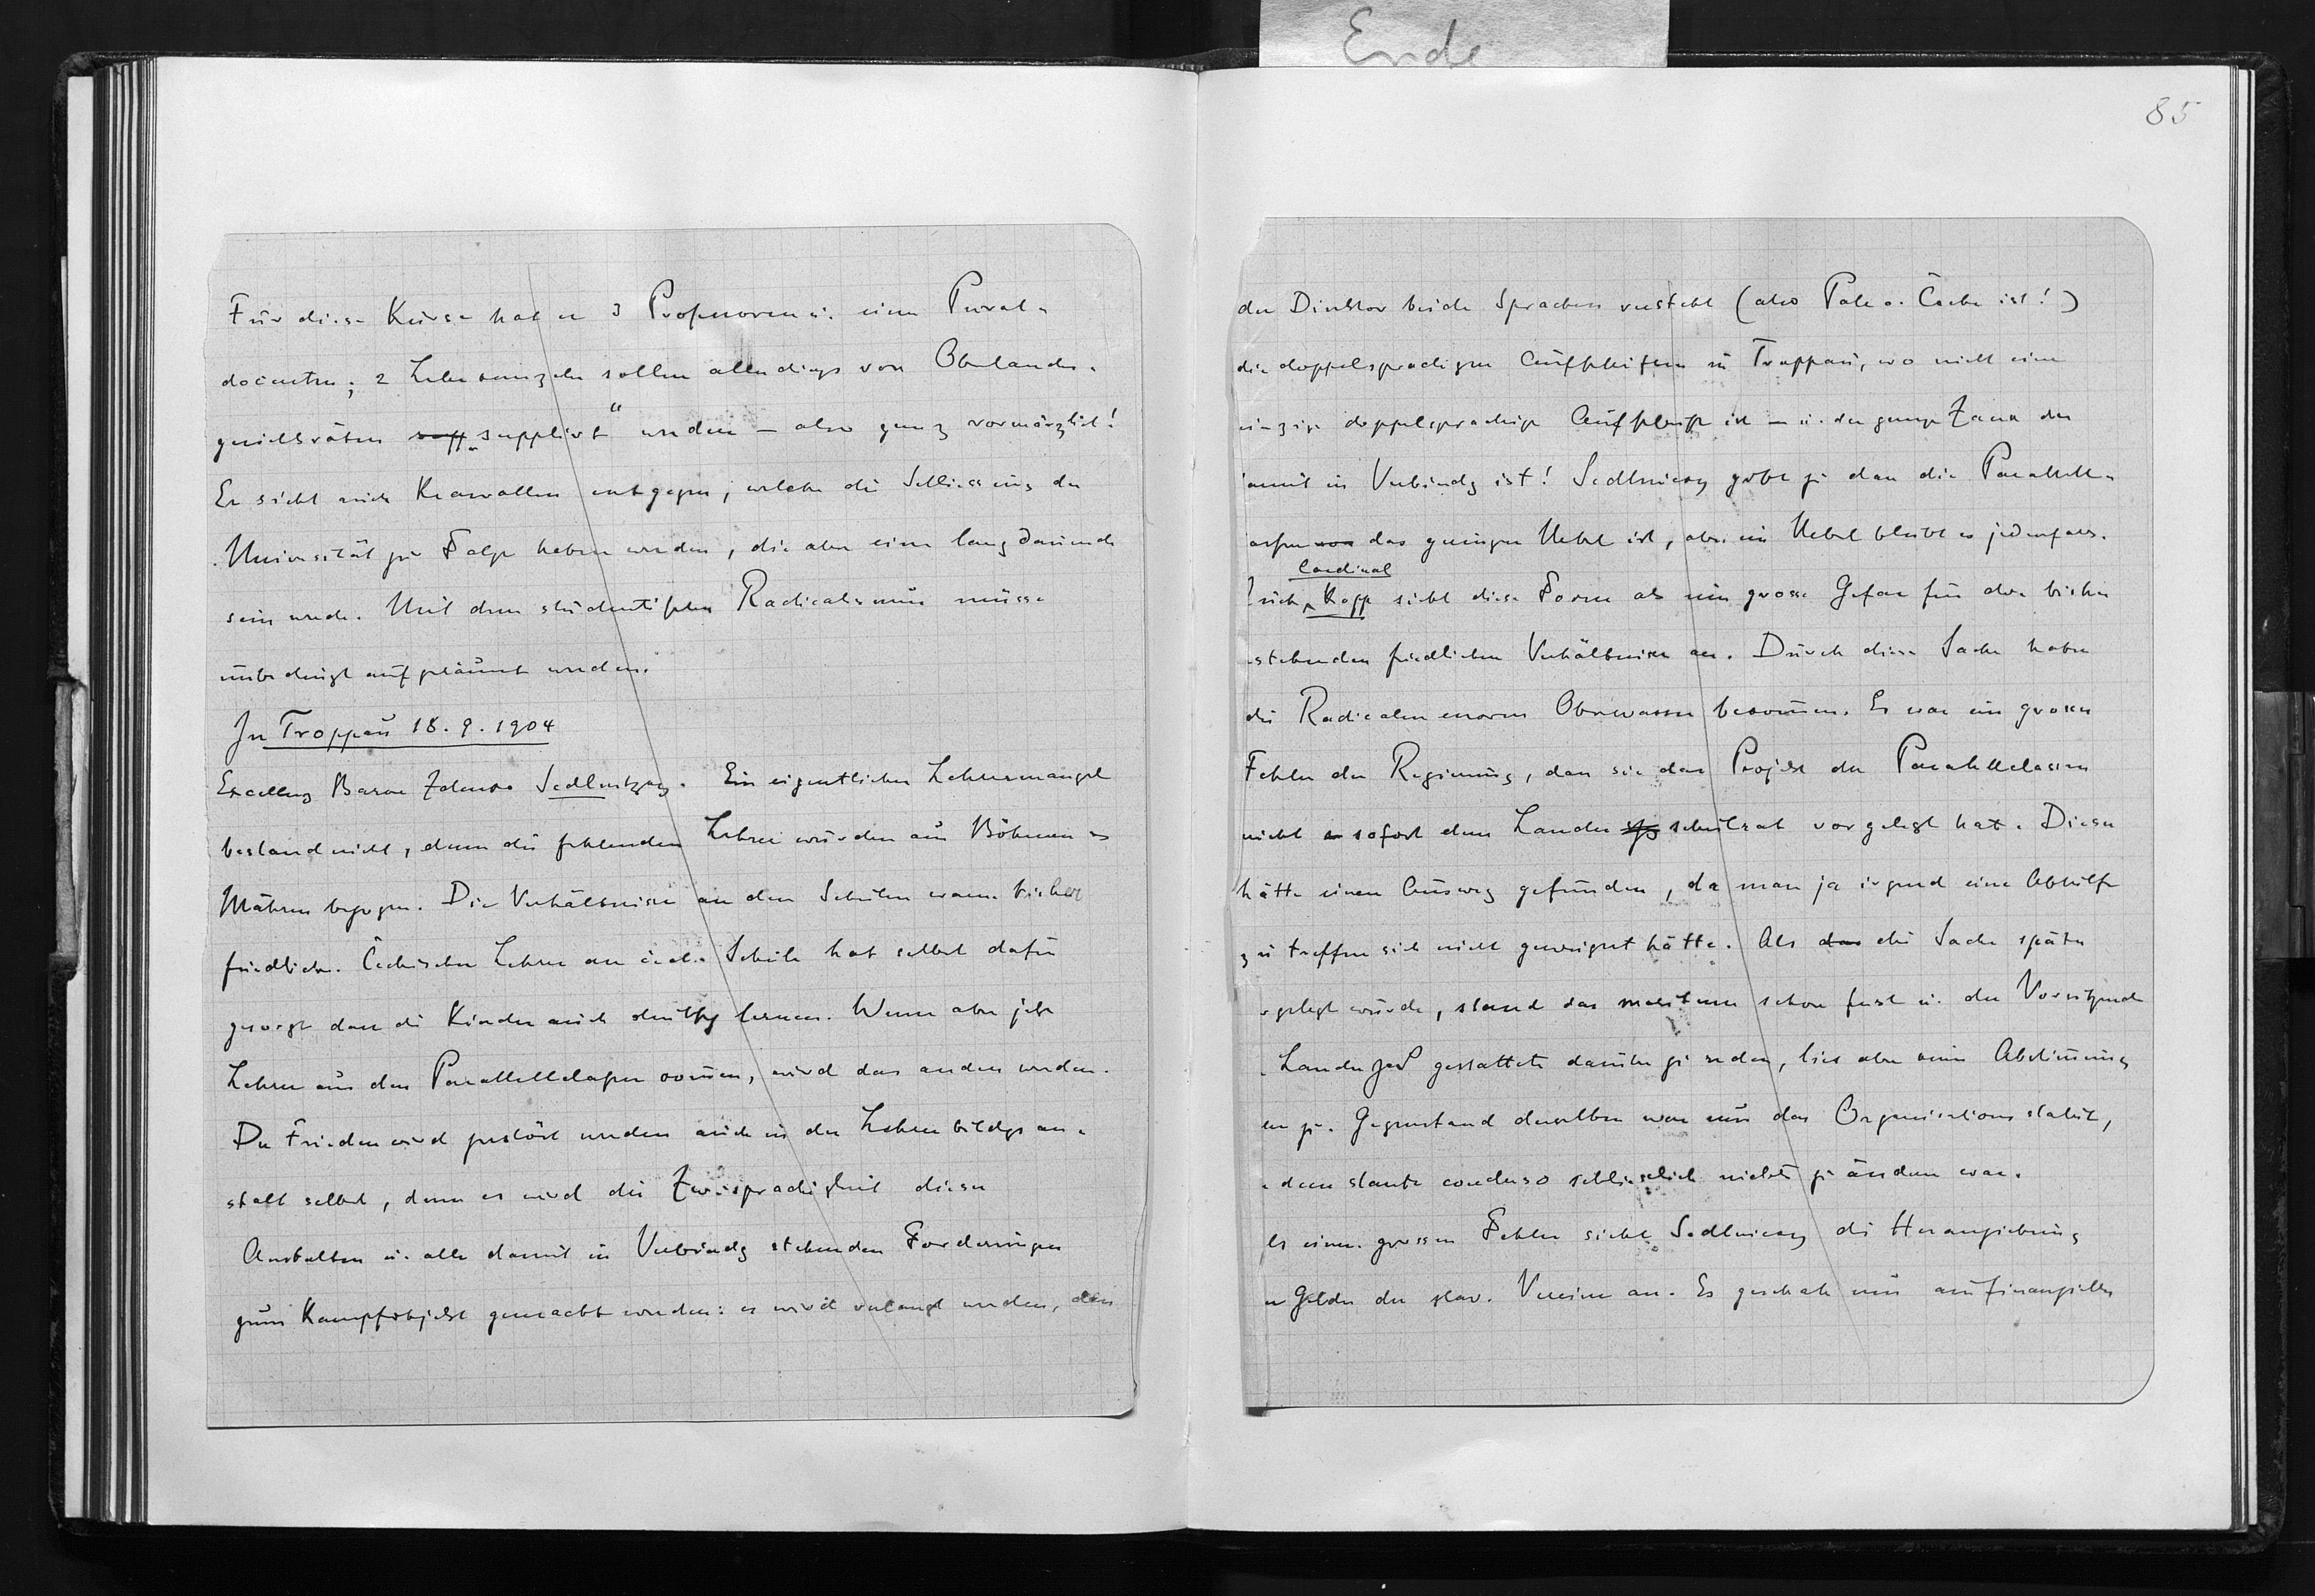 Ende
85
Für diese Kurse hat er 3 Professoren u. einen Privat-
docenten; 2 Lehrkanzeln sollen allerdings von Oberlandes-
gerichtsräten supp „supplirt“ werden – also ganz vormärzlich!
Er sieht auch Krawallen entgegen, welche die Schliessung der
Universität zur Folge haben werden, die aber eine langdauernde
sein werde. Mit dem studentischen Radicalismus müsse
unbedingt aufgeräumt werden.
In Troppau 18.9.1904
Excellenz Baron Zdenko Sedlnitzky. Ein eigentlicher Lehrermangel
bestand nicht, denn die fehlenden Lehrer wurden aus Böhmen u
Mähren bezogen. Die Verhältnisse an den Schulen waren bisher
friedlich. Čechischer Lehrer an čech. Schule hat selbst dafür
gesorgt dass die Kinder auch deutsch lernen. Wenn aber jetzt
Lehrer aus den Parallelklassen kommen, wird das anders werden.
Der Frieden wird gestört werden auch in der Lehrerbildgsan-
stalt selbst, denn es wird die Zweisprachigkeit dieser
Anstalten u. alle damit in Verbindg stehenden Forderungen
zum Kampfobjekt gemacht werden: es wird verlangt werden, dass
der Direktor beide Sprachen versteht (also Pole o. Čeche ist!)
die doppelsprachigen Aufschriften in Troppau, wo nicht eine
einzige doppelsprachige Aufschrift ist – u. der ganze Zank der
damit in Verbindg ist! Sedlnicky gibt zu dass die Parallelk-
lassen das geringere Uebel ist, aber ein Uebel bleibt es jedenfalls.
Cardinal
Auch Kopp sieht diese Form als eine grosse Gefar für die bisher
bestehenden friedlichen Verhältnisse an. Durch diese Sache haben
die Radicalen enorm Oberwasser bekommen. Es war ein grosser
Fehler der Regierung, dass sie das Projekt der Parallelclassen
nicht sofort dem Landesschulrat vorgelegt hat. Dieser
hätte einen Ausweg gefunden, da man ja irgend eine Abhilfe
zu treffen sich nicht geweigert hätte. Als die Sache später
gelegt wurde, stand das meritum schon fest u. der Vorsitzende
Landes gestattete darüber zu reden, liess aber keine Abstimmung
zu. Gegenstand derselben war nur das Organisationsstatut,
dem stante concluso schliesslich nichts zu ändern war.
Als einen grossen Fehler sieht Sedlnicky die Heranziehung
Gelder der slav. Vereine an. Es geschah nur aus finanziellen